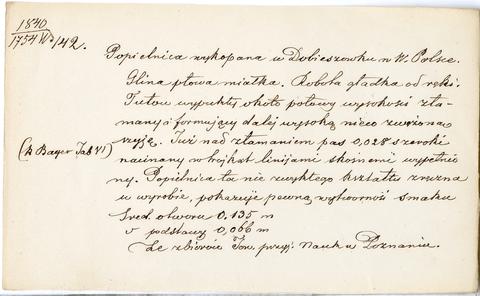 1840
1754 /42.
Popielnica wykopana w Dobieszewku w W. Polsce.
Glina płowa miałka. Robota gładka od ręki.
Tułów wypukły około połowy wysokości zła-
many i formujący dalej wysoką nieco zwężoną
szyję. Tuż nad złamaniem pas 0,028 szeroki
nacinany w trójkąt linijami skośnemi wypełnio
(z Bayer Tab VI)
ny. Popielnica ta nie zwykłego kształtu zręczna
w wyrobie, pokazuje pewną wytworność smaku
Śred. otworu 0,135 m
" podstawy 0,066 m
Ze zbiorów Tow. przyj. Nauk w Poznaniu.